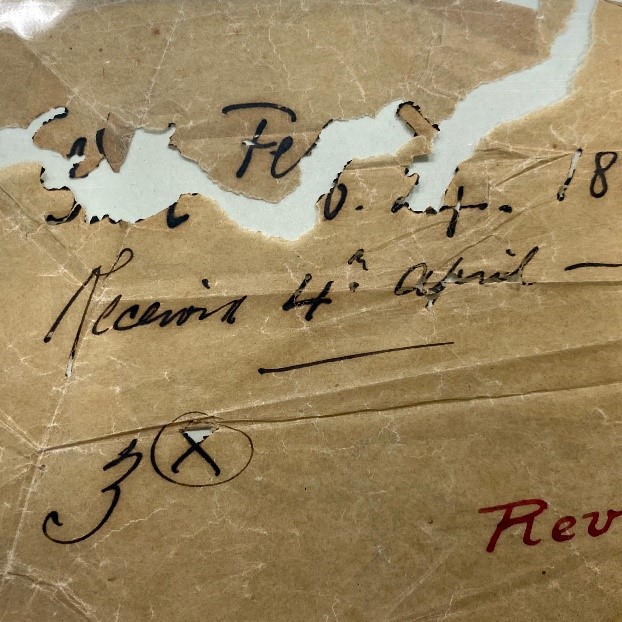 Feb. 24. 18
Received 4th April —
3 X
Rev